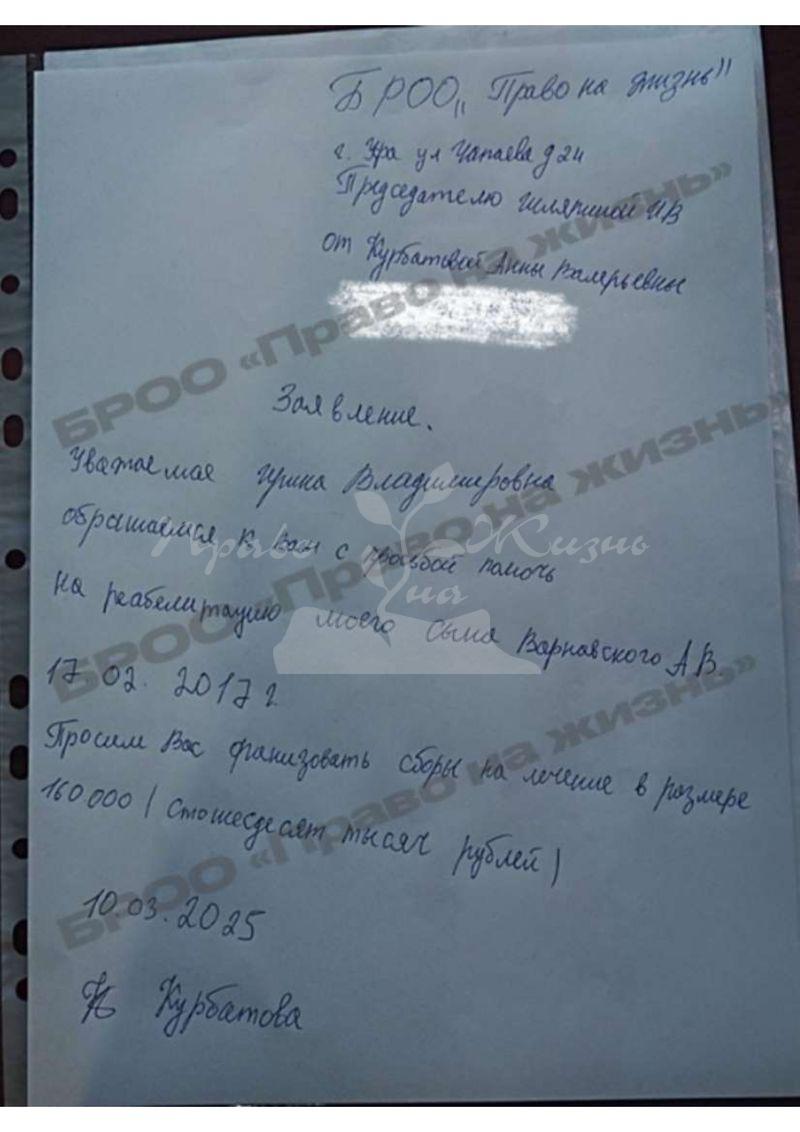 БРОО „Право на жизнь"
г. Уфа ул Чапаева д 24
Председателю Шляпиной ИВ
от Курбатовой Анны Валерьевны
Заявление.
Уважаемая Ирина Владимировна
обращаемся к Вам с просьбой помочь
на реабелитацию моего сына Варнавского А.В.
17 02. 2017 г.
Просим Вас организовать сборы на лечение в размере
160 000 / Стошесдесят тысяч рублей /
10.03.2025
Курбатова
БРОО «Право на жизнь»
БРОО «Право на жизнь»
БРОО «Право на жизнь»
Право на Жизнь